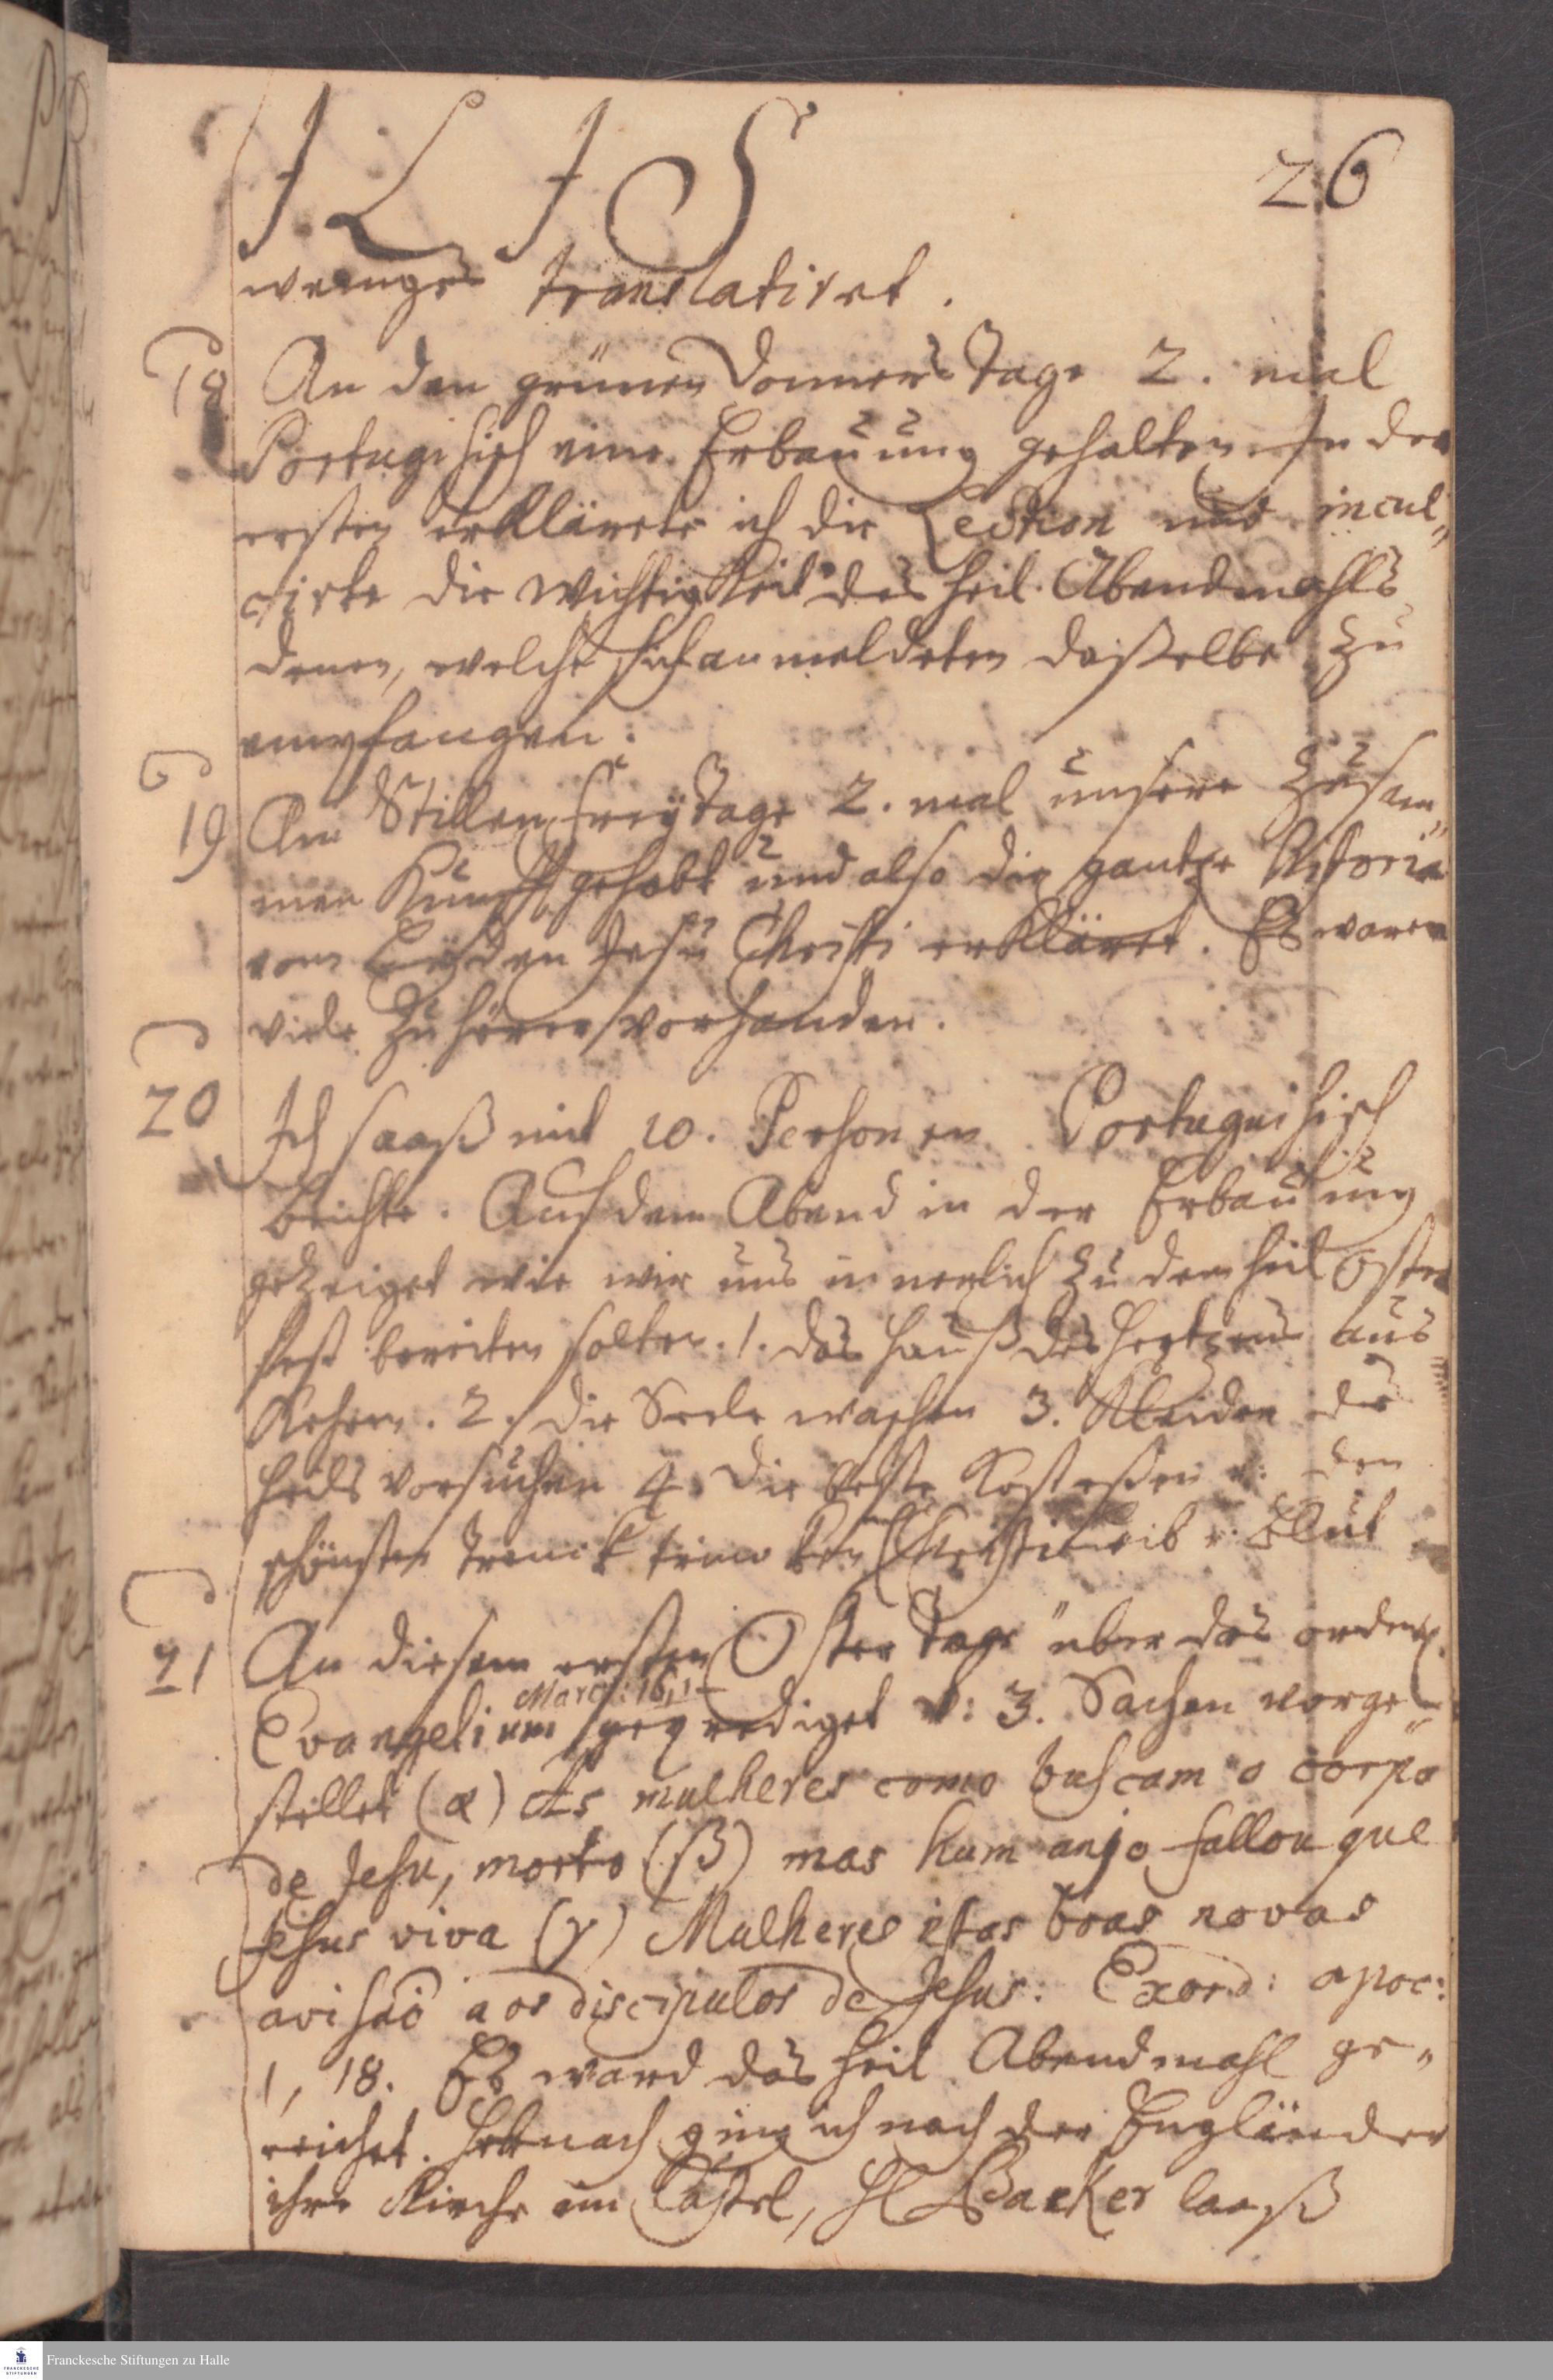 26
weniges translatiret.
18 An den grünen Donners Tage 2. mal
Portugisisch eine Erbauung gehalten. In der
ersten erklärete ich die Lection und incul„
cirte die Wichtigkeit des heil. Abendmahls
denen, welche sich anmeldeten daßelbe zu
empfangen.
19 Am Stillen Freytage 2. mal unsere Zusam„
men Kunfft gehabt und also die gantze Historie
vom Leyden Jesu Christi erkläret. Es waren
viele Zuhörer vorhanden.
20 Ich saaß mit 10. Personen Portuguisisch
Beichte. Auf dem Abend in der Erbauung
gezeiget wie wir uns innerlich zu dem heil Oster
fest bereiten solten. 1. das Hauß des Hertzens aus
Kehren. 2. die Seele waschen 3. Kleider des
Heils versuchen 4. die beste Kost eßen u: den
schönsten Tranck trincken Christi Leib u. Blut
21 An diesem ersten Oster Tage über das ordentl.
Marc: 16,1-
Evangelium geprediget u: 3. Sachen vorge„
stellet (α) As mulheres como buscam o corpo
de Jesu, morto (β) mas hum anjo fallou que
Jesus viva (γ) Mulheres estas boas novas
avisão aos discipulos de Jesus. Exord: apoc:
1, 18. Es ward das heil Abendmahl ge„
reichet. Hernach ging ich nach der Engländer
ihre Kirche im Castel, H Backer laaß
Franckesche Stiftungen zu Halle